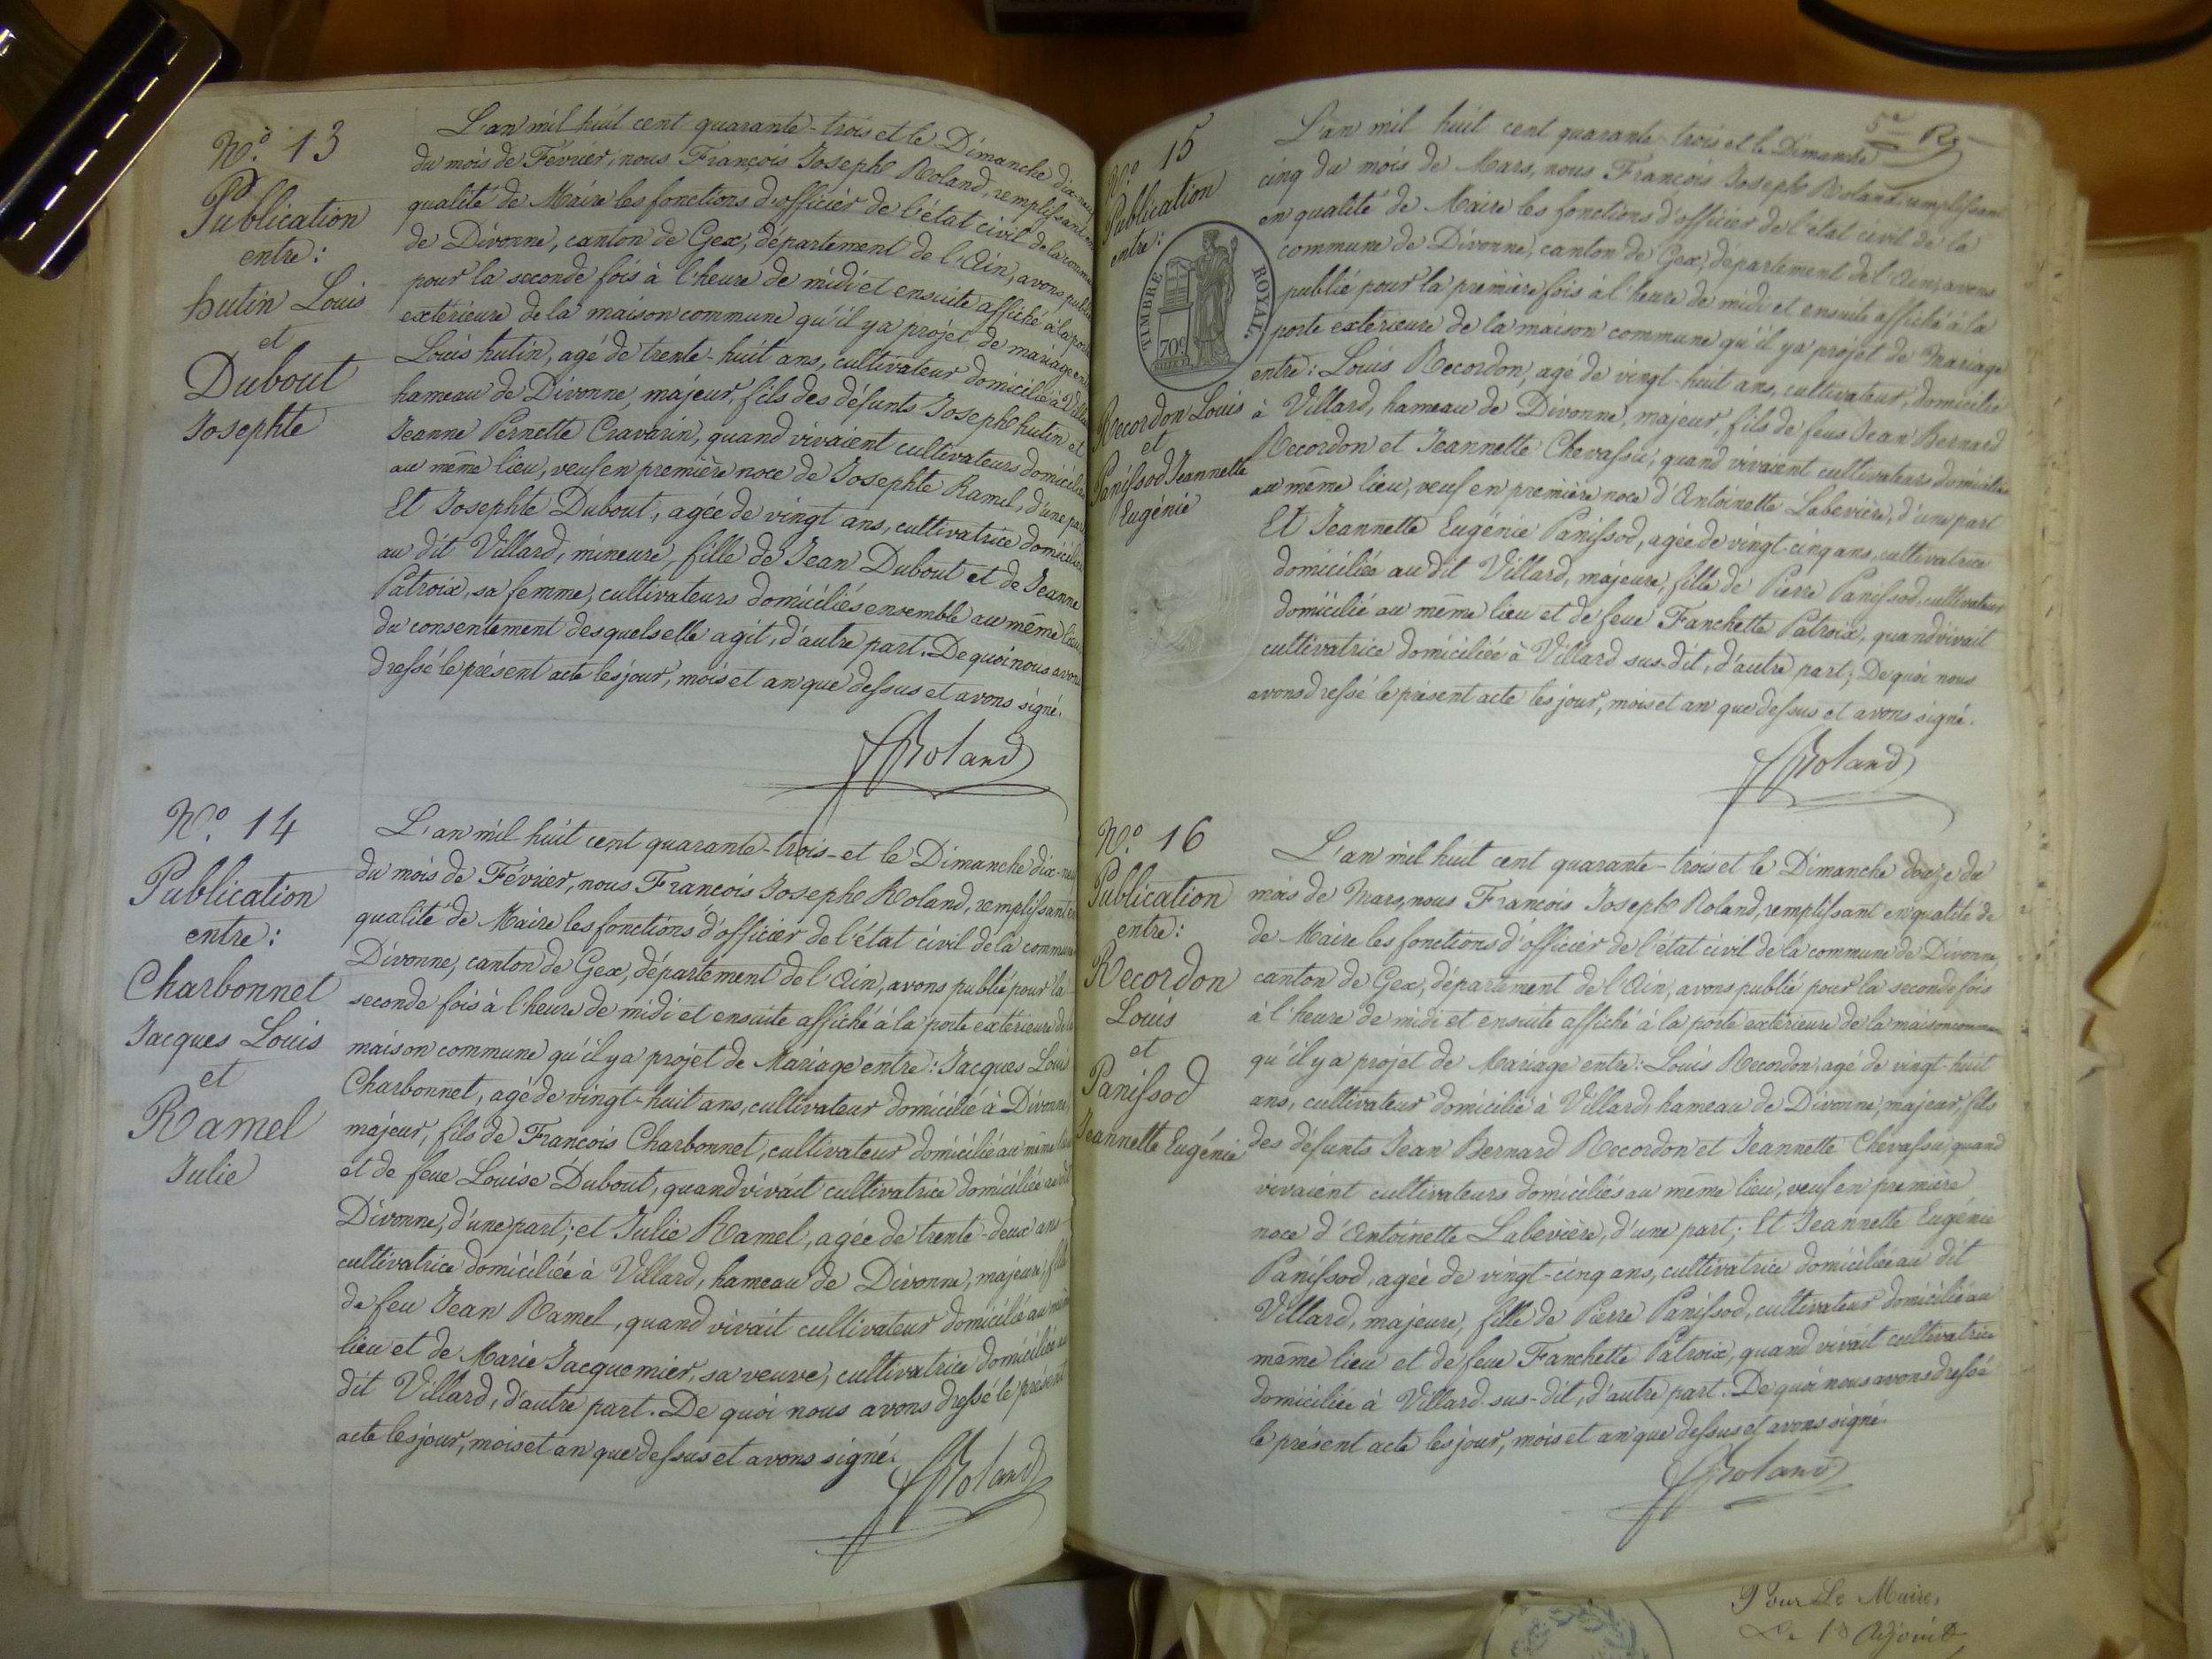 N.º 13
Publication
entre:
hutin Louis
et
Dubout
Josephte
L'an mil huit cent quarante-trois et le Dimanche dix-neuf
du mois de Février, nous François Joseph Roland, remplissant en
qualité de Maire les fonctions d'officier de l'état civil de la commune
de Divonne, canton de Gex, département de l'Ain, avons publié
pour la seconde fois à l'heure de midi et ensuite affiché à la porte
extérieure de la maison commune qu'il y a projet de mariage entre
Louis hutin, agé de trente-huit ans, cultivateur domicilié à Villard
hameau de Divonne, majeur, fils des défunts Joseph hutin et
Jeanne Pernette Cravarin, quand vivaient cultivateurs domiciliés
au même lieu, veuf en première noce de Josephte Ramel, d'une part
Et Josephte Dubout, agée de vingt ans, cultivatrice domiciliée
au dit Villard, mineure, fille de Jean Dubout et de Jeanne
Patroix, sa femme, cultivateurs domiciliés ensemble au même lieu,
du consentement desquels elle agit, d'autre part. De quoi nous avons
dressé le présent acte les jour, mois et an que dessus et avons signé.
FRoland
N.º 14
Publication
entre:
Charbonnet
Jacques Louis
et
Ramel
Julie
L'an mil huit cent quarante-trois-et le Dimanche dix-neuf
du mois de Février, nous François Joseph Roland, remplissant en
qualité de Maire les fonctions d'officier de l'état civil de la commune
Divonne, canton de Gex, département de l'Ain, avons publié pour la
seconde fois à l'heure de midi et ensuite affiché à la porte extérieure de la
maison commune qu'il y a projet de Mariage entre: Jacques Louis
Charbonnet, agé de vingt-huit ans, cultivateur domicilié à Divonne,
majeur, fils de François Charbonnet, cultivateur domicilié au même lieu
et de feue Louise Dubout, quand vivait cultivatrice domiciliée au dit
Divonne, d'une part; et Julie Ramel, agée de trente-deux ans
cultivatrice domiciliée à Villard, hameau de Divonne, majeure, fille
de feu Jean Ramel, quand vivait cultivateur domicilié au même
lieu et de Marie Jacquemier, sa veuve, cultivatrice domiciliée au
dit Villard, d'autre part. De quoi nous avons dressé le présent
acte les jour, mois et an que dessus et avons signé.
FRoland
5e Rg
N.º 15
Publication
entre:
TIMBRE ROYAL
70c
Recordon Louis
et
Panissod Jeannette
Eugénie
L'an mil huit cent quarante-trois et le Dimanche
cinq du mois de Mars, nous François Joseph Roland remplissant
en qualité de Maire les fonctions d'officier de l'état civil de la
commune de Divonne, canton de Gex, département de l'Ain, avons
publié pour la première fois à l'heure de midi et ensuite affiché à la
porte extérieure de la maison commune qu'il y a projet de Mariage
entre: Louis Recordon, agé de vingt-huit ans, cultivateur, domicilié
à Villard, hameau de Divonne, majeur, fils de feus Jean Bernard
Recordon et Jeannette Chevassu, quand vivaient cultivateurs domiciliés
au même lieu, veuf en première noce d'Antoinette Labevière, d'une part
Et Jeannette Eugénie Panissod, agée de vingt-cinq ans, cultivatrice
domiciliée au dit Villard, majeure, fille de Pierre Panissod, cultivateur
domicilié au même lieu et de feue Fanchette Patroix, quand vivait
cultivatrice domiciliée à Villard sus-dit, d'autre part; De quoi nous
avons dressé le présent acte les jour, mois et an que dessus et avons signé.
FRoland
N.º 16
Publication
entre:
Recordon
Louis
et
Panissod
Jeannette Eugénie
L'an mil huit cent quarante-trois et le Dimanche douze du
mois de Mars, nous François Joseph Roland, remplissant en qualité de
de Maire les fonctions d'officier de l'état civil de la commune de Divonne,
canton de Gex, département de l'Ain, avons publié pour la seconde fois
à l'heure de midi et ensuite affiché à la porte extérieure de la maison commune
qu'il y a projet de Mariage entre: Louis Recordon, agé de vingt-huit
ans, cultivateur domicilié à Villard, hameau de Divonne, majeur, fils
des défunts Jean Bernard Recordon et Jeannette Chevassu, quand
vivaient cultivateurs domiciliés au même lieu, veuf en première
noce d'Antoinette Labevière, d'une part; Et Jeannette Eugénie
Panissod, agée de vingt-cinq ans, cultivatrice domiciliée au dit
Villard, majeure, fille de Pierre Panissod, cultivateur domicilié au
même lieu et de feue Fanchette Patroix, quand vivait cultivatrice
domiciliée à Villard sus-dit, d'autre part. De quoi nous avons dressé
le présent acte les jour, mois et an que dessus et avons signé.
FRoland
Pour Le Maire,
Le 1er Adjoint